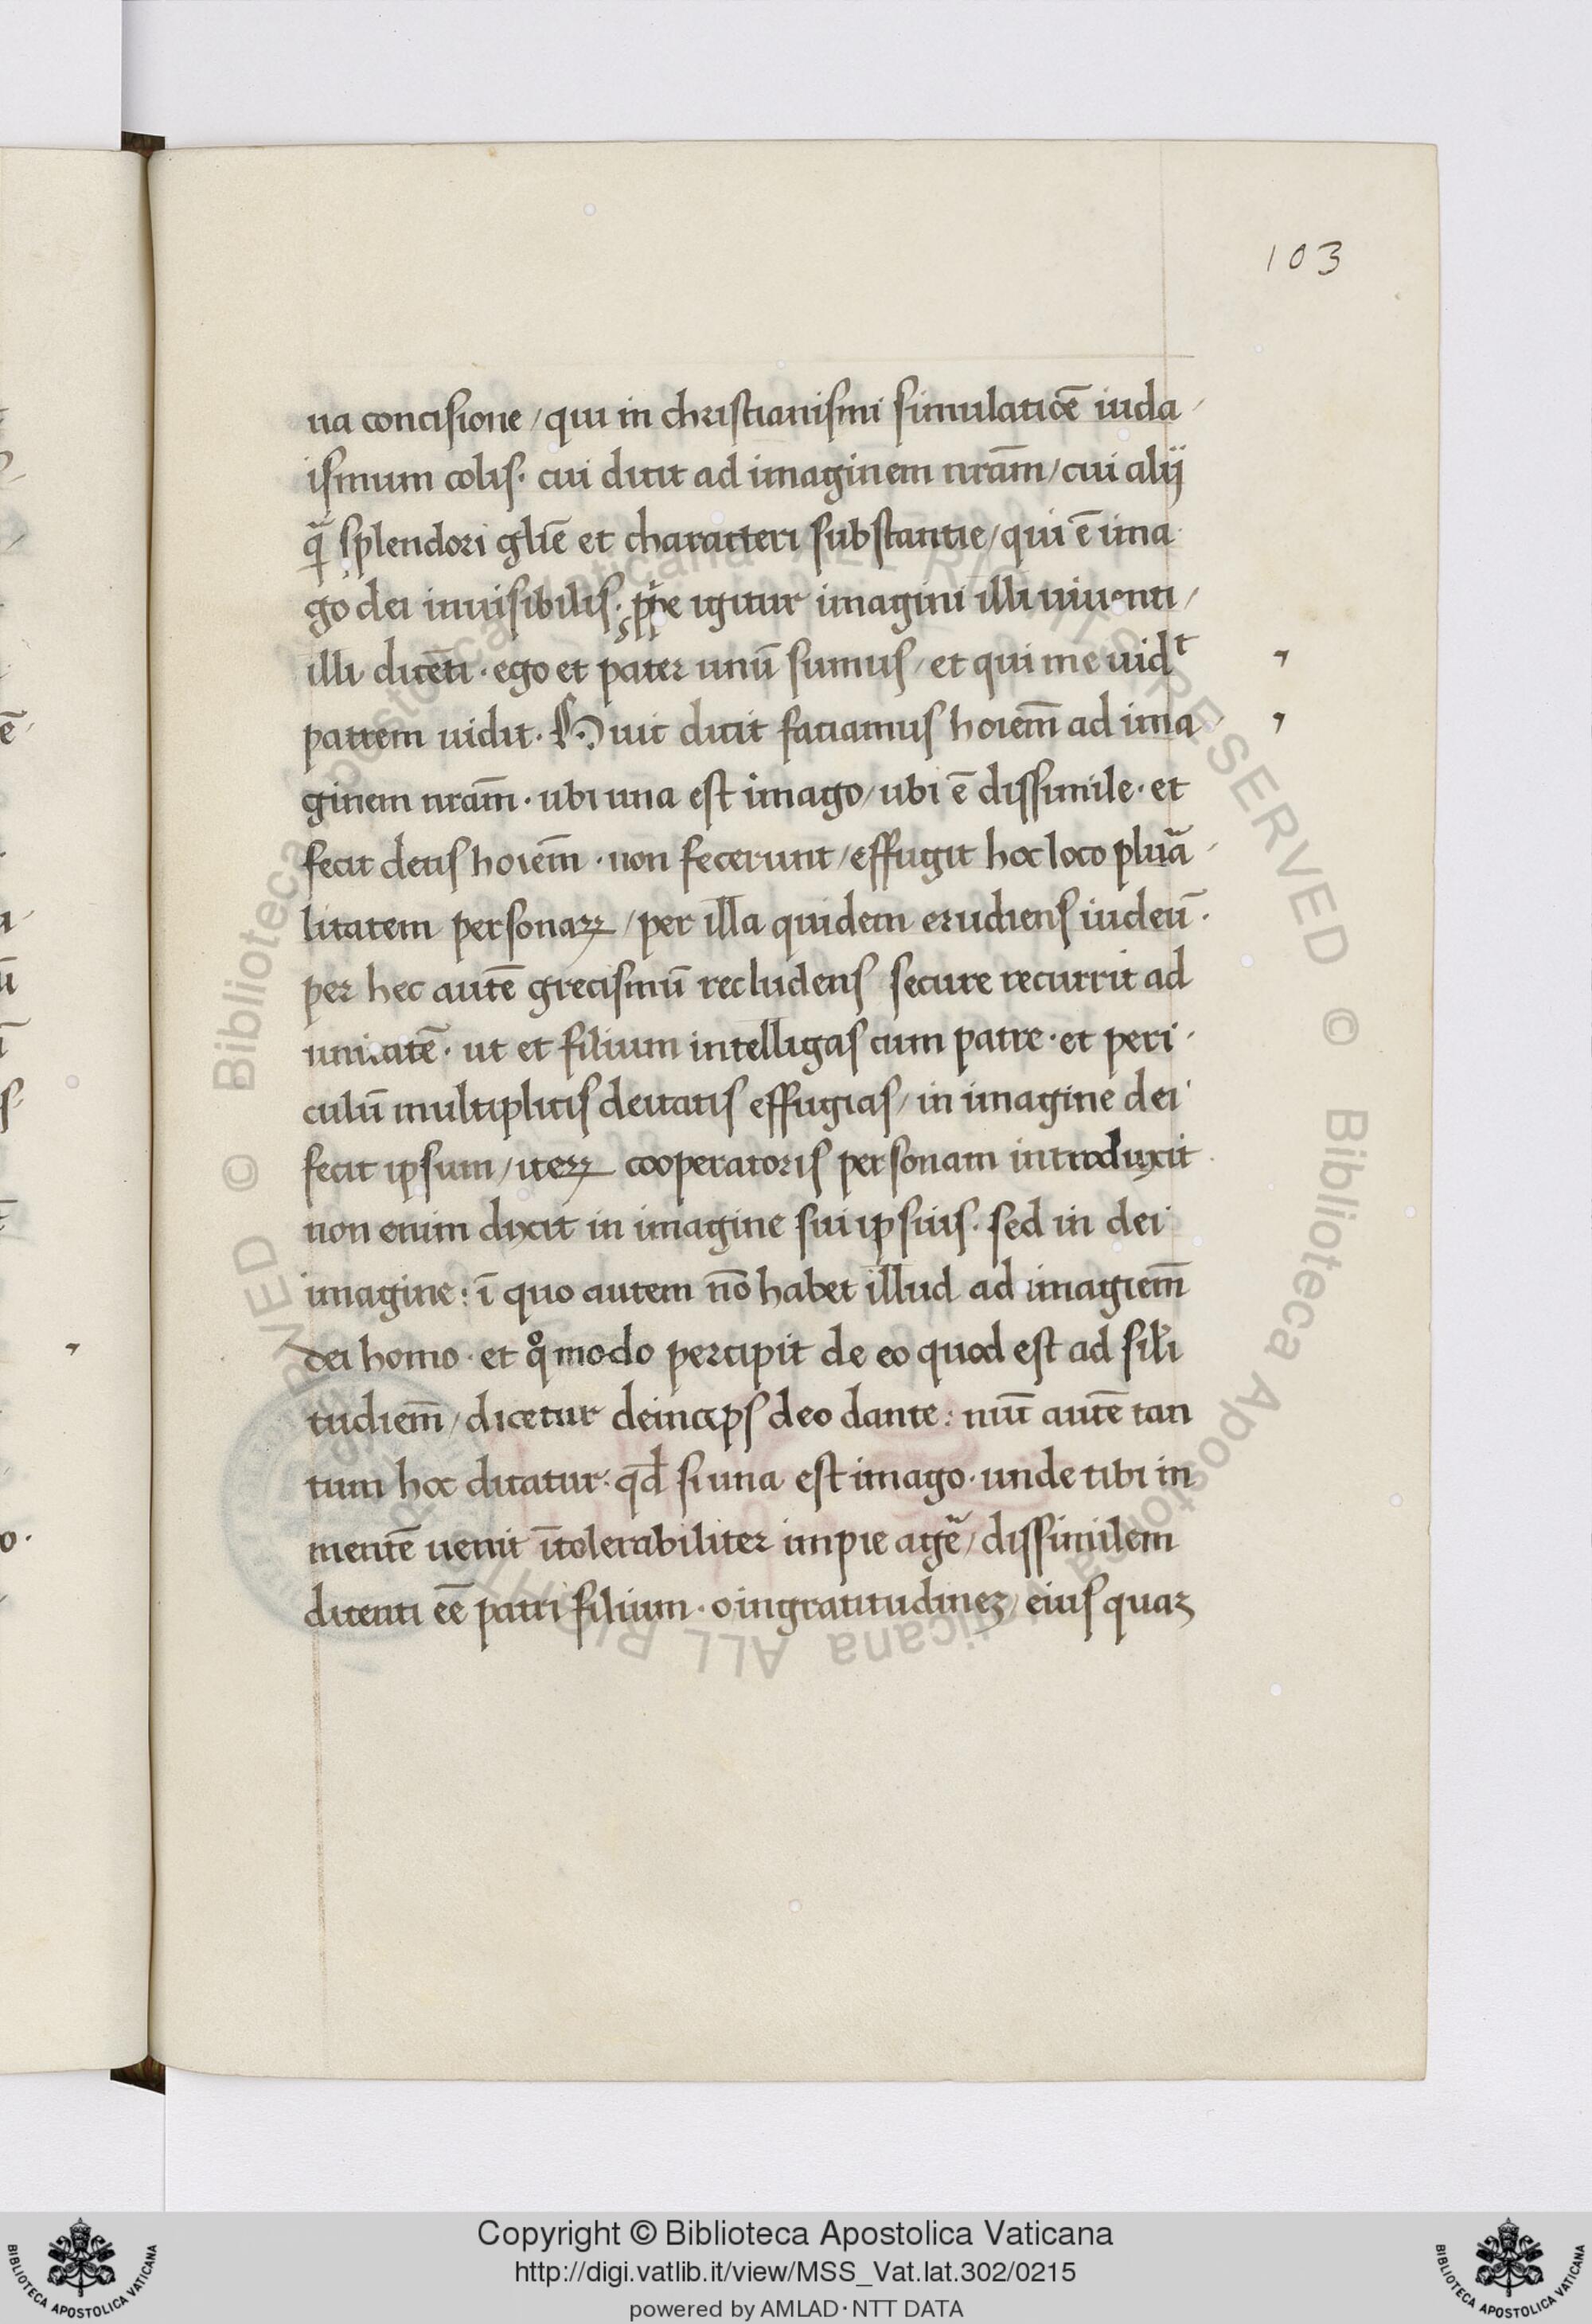 103
ua concisione / qui in christianismi simulatiōe iuda /
ismum colis · cui dicit ad imaginem nrām / cui alij
q̄ splendori gl̄ie et characteri substantie / qui ē ima
go dei inuisibilis · prīe igitur imagini illi uiuenti /
illi dicēti · ego et pater unū sumus / et qui me uidᵗ
patrem uidit · Huic dicit faciamus hoiem̄ ad ima
ginem nrām · ubi una est imago / ubi ē dissimile · et
fecit deus hoiem̄ · non fecerunt / effugit hoc loco plurā
litatem personaꝝ / per illa quidem erudiens iudeū ·
per hec autē grecismū recludens secure recurrit ad
unitatē · ut et filium intelligas cum patre · et peri
culū multiplicis deitatis effugias / in imagine dei
fecit ipsum / iteꝝ cooperatoris personam introduxit
non enim dixit in imagine sui ipsius · sed in dei
imagine : ī quo autem nō habet illud ad imagiem̄
dei homo · et qͦmodo percipit de eo quod est ad sili
tudiem̄ / dicetur deinceps deo dante : nūc autē tan
tum hoc dicatur · qđ si una est imago · unde tibi in
mentē uenit ītolerabiliter impie agē / dissimilem
dicenti eē patri filium · o ingratitudineꝫ / eius quaꝫ
Copyright © Biblioteca Apostolica Vaticana
http://digi.vatlib.it/view/MSS_Vat.lat.302/0215
powered by AMLAD · NTT DATA